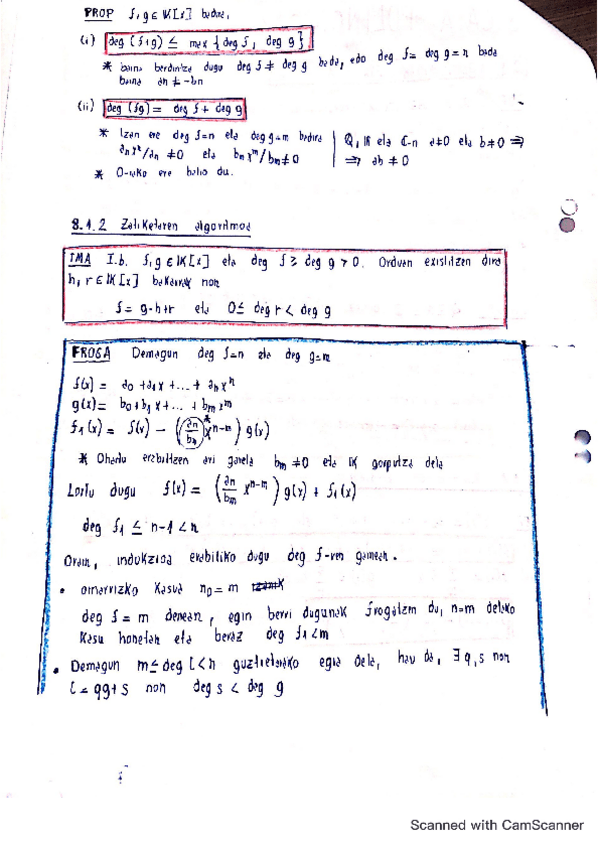 PROP f,g ∈ K[x] badira,
(i) deg (f+g) ≤ max {deg f, deg g}
* baina berdintza dugu deg f ≠ deg g bada, edo deg f = deg g = n bada
baina an ≠ -bn
(ii) deg (fg) = deg f + deg g
* Izan ere deg f=n eta deg g=m badira | Q, IR eta C-n a≠0 eta b≠0 ⇒
anxⁿ/an ≠0 eta bmxᵐ/bm≠0 | ⇒ ab ≠ 0
* 0-rako ere balio du.
8.1.2 Zatiketaren algoritmoa
TMA I.b. f,g ∈ IK[x] eta deg f ≥ deg g > 0. Orduan existitzen dira
h, r ∈ IK[x] bakarrak non
f = g·h+r eta 0≤ deg r < deg g
FROGA Demagun deg f=n eta deg g=m
f(x) = a0 + a1x + ... + anxⁿ
g(x) = b0 + b1x + ... + bmxᵐ
f1(x) = f(x) − (an/bm* xⁿ⁻ᵐ) g(x)
* Ohartu erabiltzen ari garela bm ≠0 eta IK gorputza dela
Lortu dugu f(x) = (an/bm xⁿ⁻ᵐ) g(x) + f1(x)
deg f1 ≤ n-1 < n
Orain, indukzioa erabiliko dugu deg f-ren gainean.
• oinarrizko kasua n0 = m
deg f = m denean, egin berri dugunak frogatzen du, n=m delako
kasu honetan eta beraz deg f1 < m
• Demagun m ≤ deg l < n guztietarako egia dela, hau da, ∃ q,s non
l = qg+s non deg s < deg g
Scanned with CamScanner